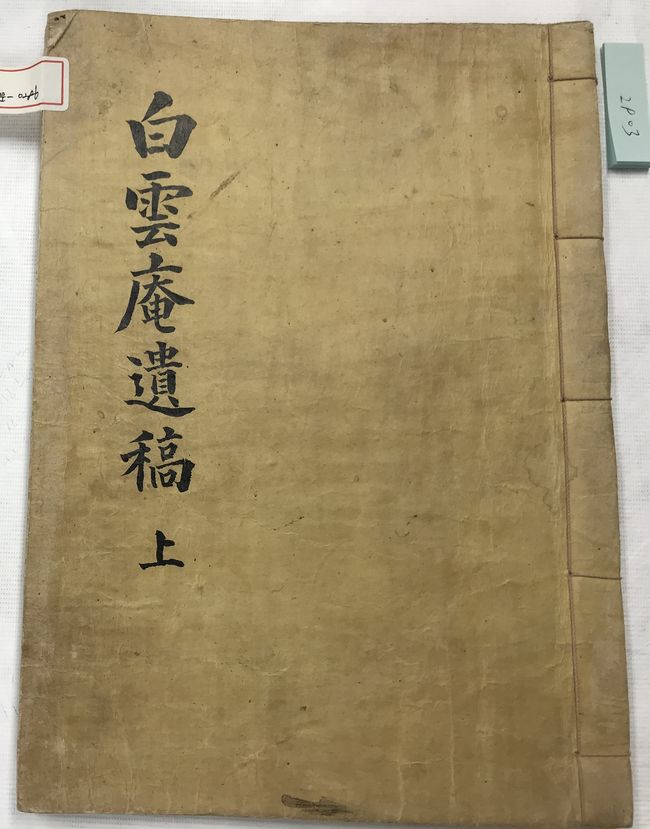 白雲庵遺稿 上
2803